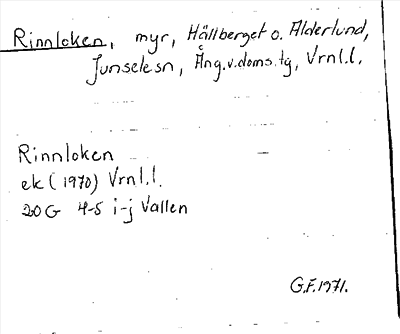 Rinnloken, myr, Hällberget o. Alderlund,
Junselesn, Ång.v.doms.tg, Vrnl.l.
Rinnloken
ek (1970) Vrnl.l.
20G 4-5 i-j Vallen
G.F. 1971.